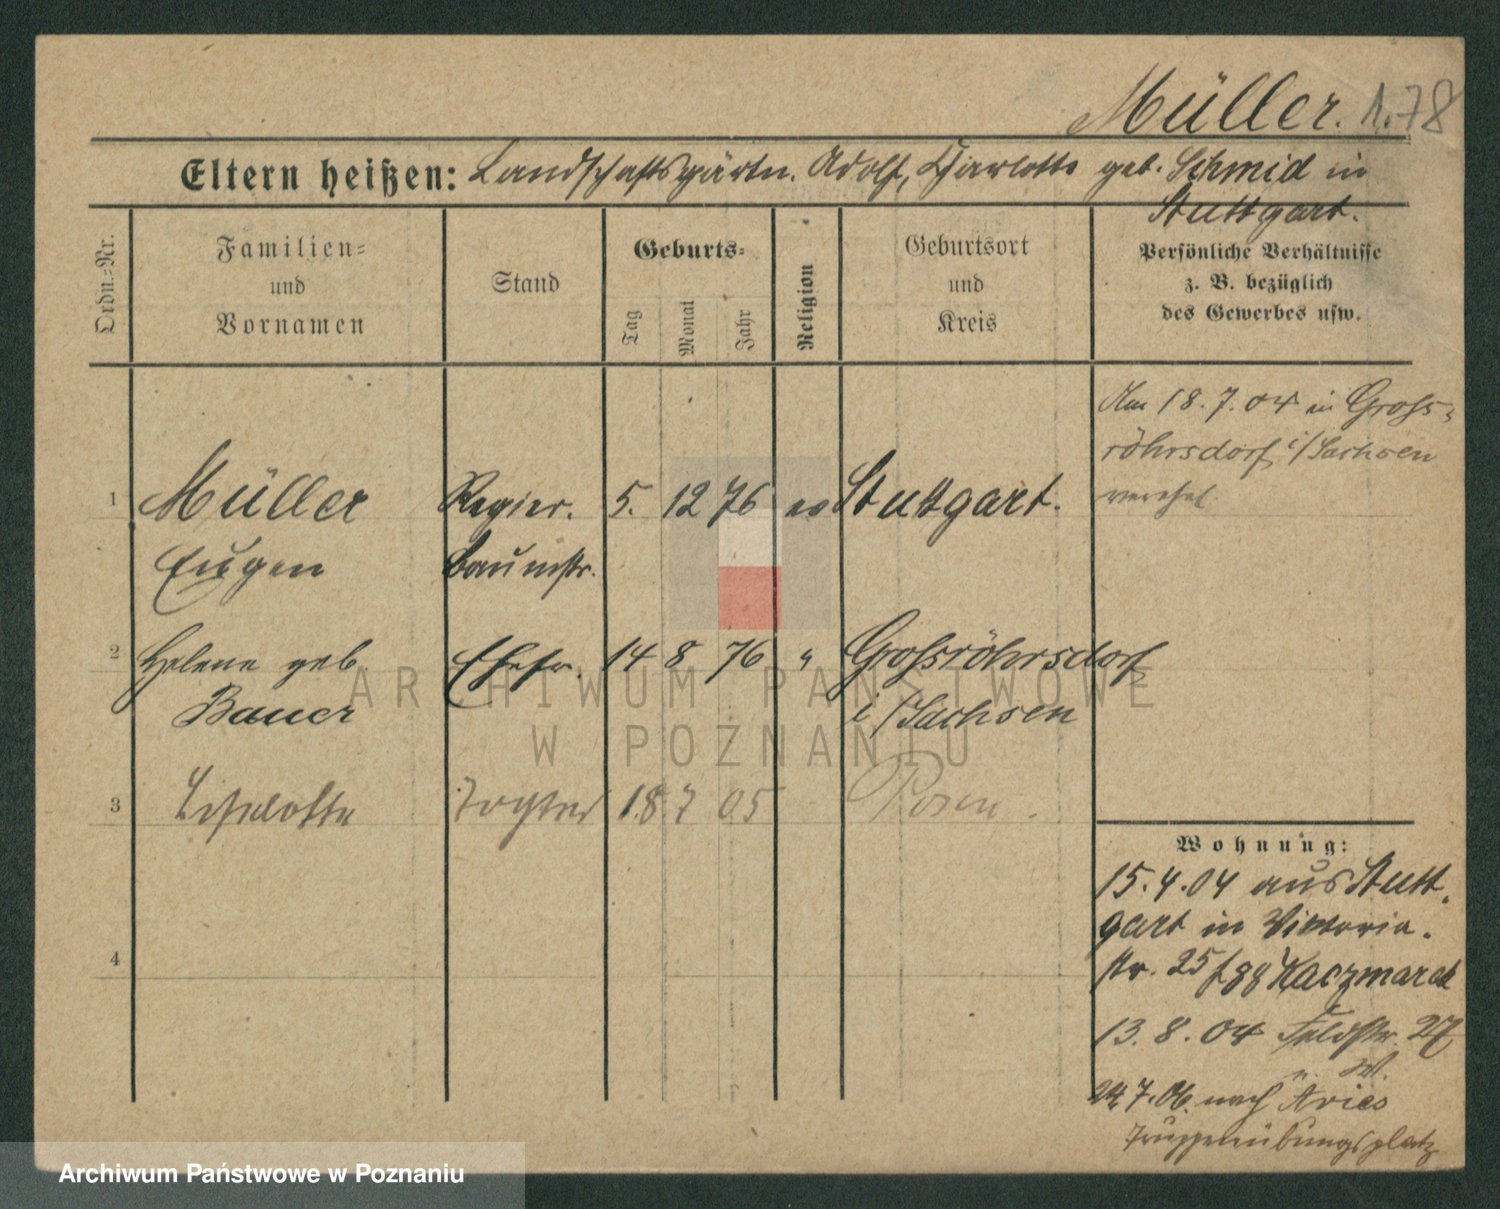 Müller. 1.78
Eltern heißen: Landschaftsgärtn. Adolf, Charlotte geb. Schmid in
Stuttgart.
Ordn.=Nr.
Familien=
und
Vornamen
Stand
Geburts=
Tag
Monat
Jahr
Religion
Geburtsort
und
Kreis
Persönliche Verhältnisse
z. B. bezüglich
des Gewerbes usw.
Am 18.7.04 in Gross=
röhrsdorf i/Sachsen
verehel.
1 Müller Regier. 5. 12 76 ev Stuttgart.
Eugen baumstr.
2 Helene geb. Ehefr. 14 8 76 " Grossröhrsdorf
Bauer i/Sachsen
3 Liselotte Tochter 18 7 05 Posen.
4
Wohnung:
15.4.04 aus Stutt.
gart in Viktoria.
str. 25 Kaczmarek
13.8.04 Feldstr. 27
24.7.06. nach Aries
Truppenübungsplatz
ARCHIWUM PAŃSTWOWE
W POZNANIU
Archiwum Państwowe w Poznaniu